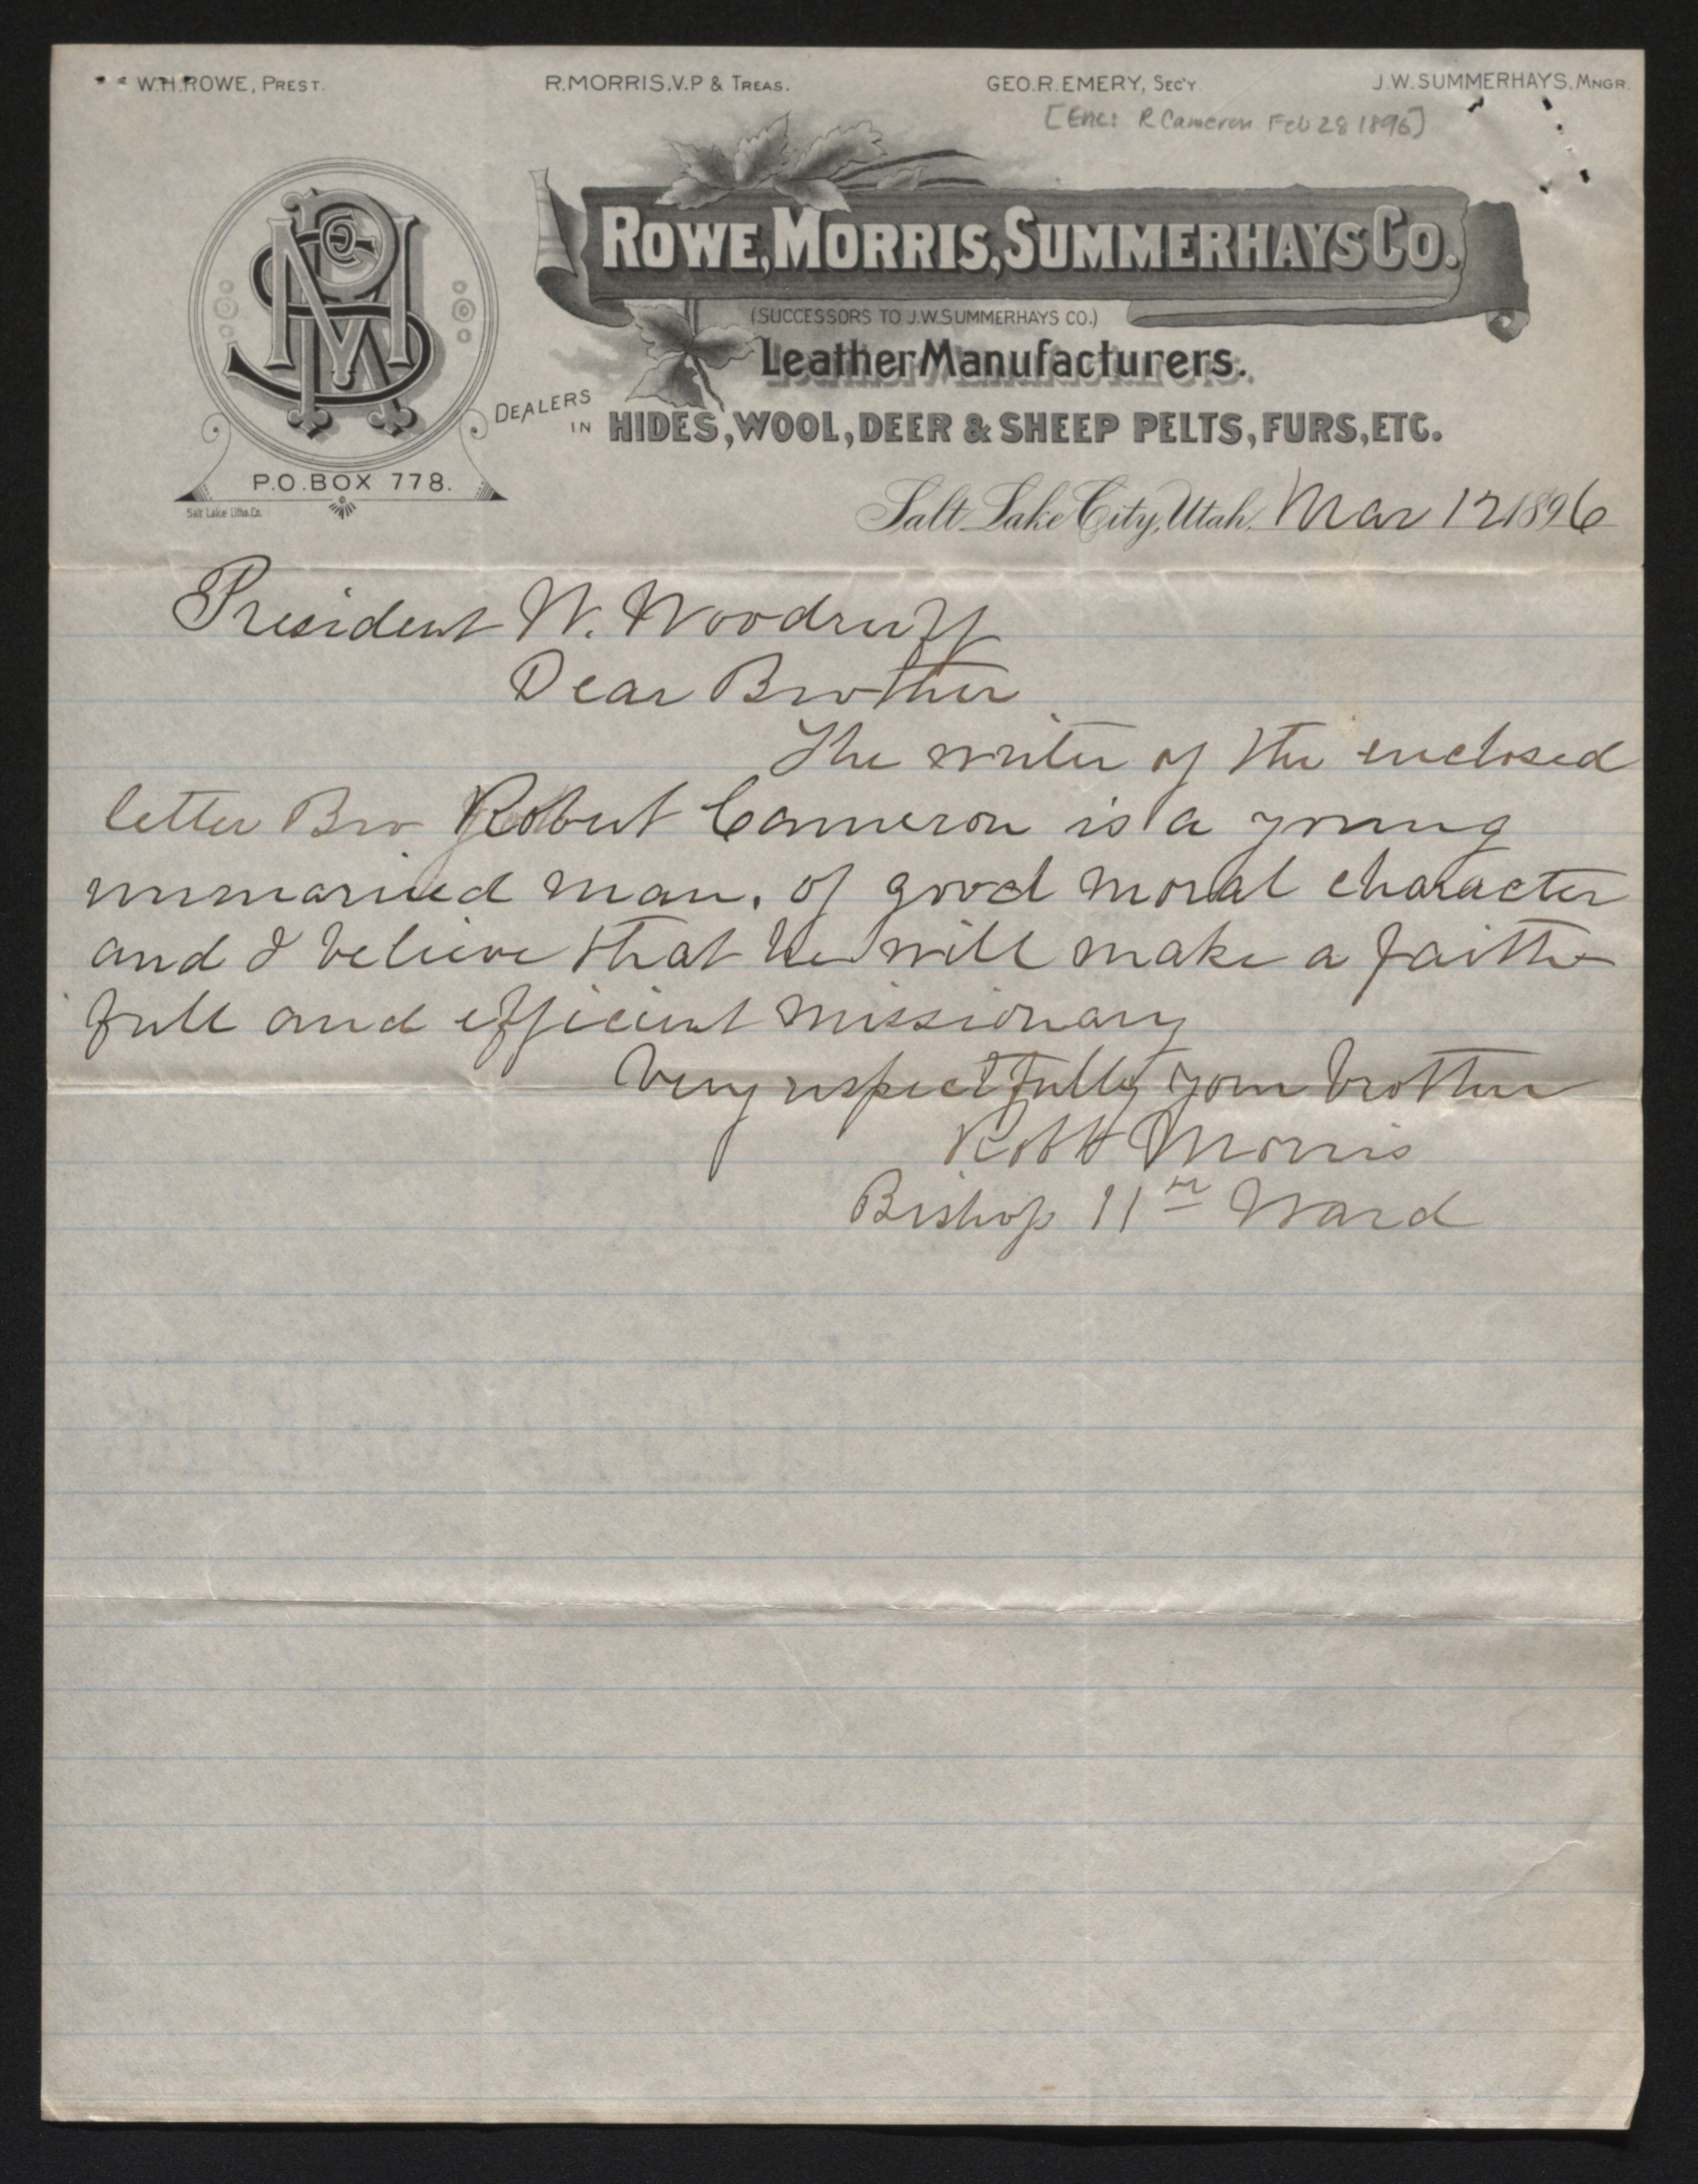 W.H. ROWE, PREST. R. MORRIS, V.P & TREAS. GEO. R. EMERY, SEC'Y. J.W. SUMMERHAYS, MNGR.
[Enc: R Cameron Feb 28 1896]
ROWE, MORRIS, SUMMERHAYS CO.
(SUCCESSORS TO J.W. SUMMERHAYS CO.)
Leather Manufacturers.
DEALERS IN HIDES, WOOL, DEER & SHEEP PELTS, FURS, ETC.
RMS Co
P.O. BOX 778.
Salt Lake Litho. Co.
Salt Lake City, Utah, Mar 12 1896
President W. Woodruff
Dear Brother
The writer of the enclosed
letter Bro Robert Cameron is a young
unmarried man, of good moral character
and I believe that he will make a faith-
full and efficient missionary
Very respectfully your brother
Robt Morris
Bishop 11th Ward